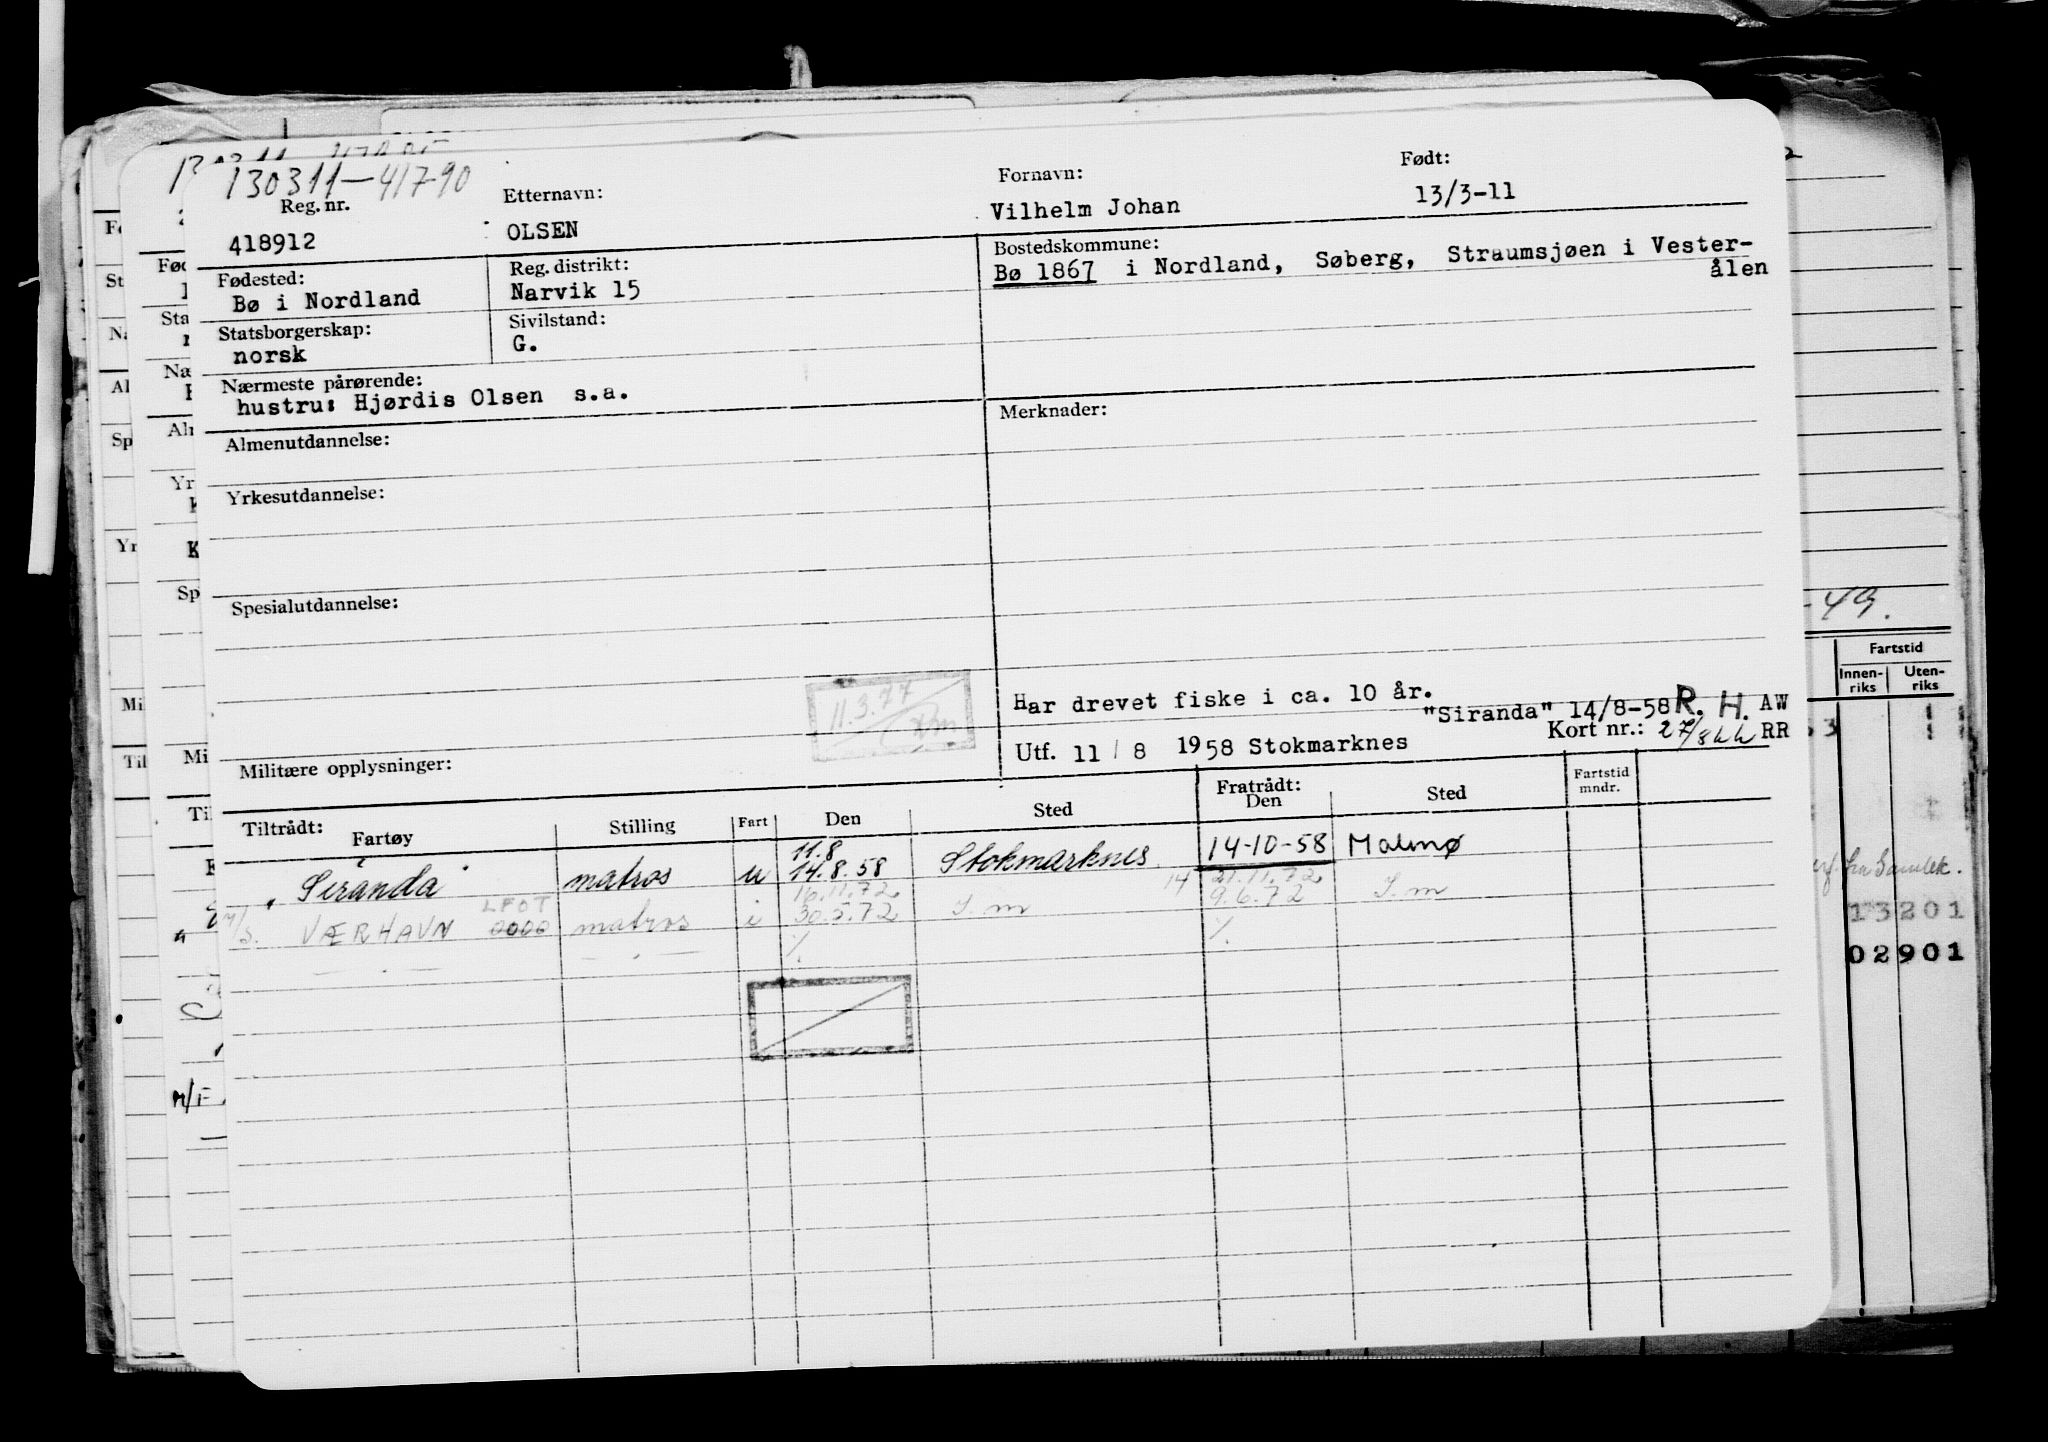 130311-41790
Reg. nr. Etternavn: Fornavn: Født:
418912 OLSEN Vilhelm Johan 13/3-11
Fødested: Reg. distrikt: Bostedskommune:
Bø i Nordland Narvik 15 Bø 1867 i Nordland, Søberg, Straumsjøen i Vester-
ålen
Statsborgerskap: Sivilstand:
norsk G.
Nærmeste pårørende:
hustru: Hjørdis Olsen s.a.
Almenutdannelse: Merknader:
Yrkesutdannelse:
Spesialutdannelse:
11.3.77
Har drevet fiske i ca. 10 år.
"Siranda" 14/8-58 R. H. AW
Utf. 11/8 1958 Stokmarknes Kort nr.: 27/8 RR
Militære opplysninger:
Tiltrådt: Fratrådt: Fartstid
Fartøy Stilling Fart Den Sted Den Sted mndr.
11.8
Siranda matros u 14.8.58 Stokmarknes 14-10-58 Malmø
16.11.72 14 21.11.72
M/S. VÆRHAVN LFOT 0000 matros i 30.5.72 S.m 9.6.72 S.m
Fartstid
Innen-riks Uten-riks
-49.
13201
02901